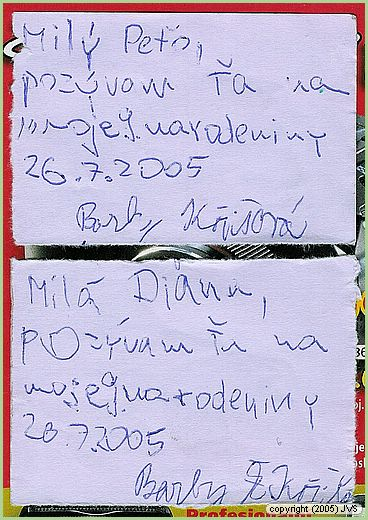 Milý Peťo,
pozývam Ťa na
moje narodeniny
26.7.2005
Barby
Milá Diana,
pozývam Ťa na
moje narodeniny
26.7.2005
Barby
Profesionální
copyright (2005) JVS